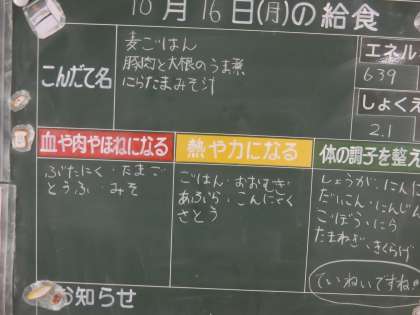 10月16日(月)の給食
こんだて名
麦ごはん
豚肉と大根のうま煮
にらたまみそ汁
エネル
639
しょくえ
2.1
血や肉やほねになる
ぶたにく・たまご
とうふ・みそ
熱や力になる
ごはん・おおむぎ
あぶら・こんにゃく
さとう
体の調子を整え
しょうが・にんに
だいこん・にんじん
ごぼう・にら
たまねぎ・きくらげ
ていねいですね!!
お知らせ